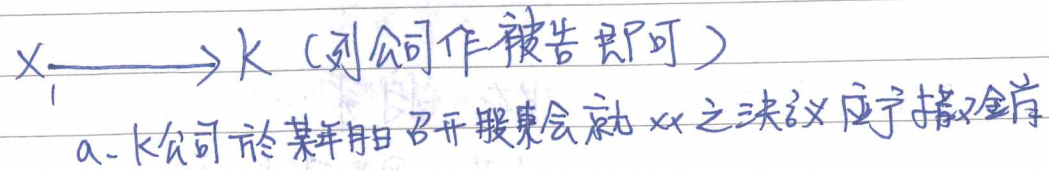 X₁ ⟶ K (列公司作被告即可)
a. K公司於某年月日召开股東会就 xx 之決议 应予撤銷